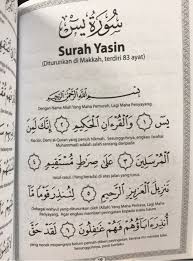 سُورَةُ يسٓ
Surah Yasin
(Diturunkan di Makkah, terdiri 83 ayat)
بِسْمِ اللَّهِ الرَّحْمَٰنِ الرَّحِيمِ
Dengan Nama Allah Yang Maha Pemurah, Lagi Maha Penyayang.
يسٓ ﴿١﴾ وَالْقُرْآنِ الْحَكِيمِ ﴿٢﴾ إِنَّكَ لَمِنَ
Demi al-Quran yang penuh hikmah. Sesungguhnya, engkau (wahai
Muhammad) adalah salah seorang daripada
الْمُرْسَلِينَ ﴿٣﴾ عَلَىٰ صِرَاطٍ مُّسْتَقِيمٍ ﴿٤﴾
rasul-rasul. (Yang berada) di atas jalan yang lurus.
تَنزِيلَ الْعَزِيزِ الرَّحِيمِ ﴿٥﴾ لِتُنذِرَ قَوْمًا مَّا
(Sebagai wahyu) yang diturunkan oleh (Allah) Yang Maha Perkasa, Lagi Maha
Penyayang. Agar engkau memberi peringatan kepada kaum
أُنذِرَ آبَاؤُهُمْ فَهُمْ غَافِلُونَ ﴿٦﴾ لَقَدْ حَقَّ